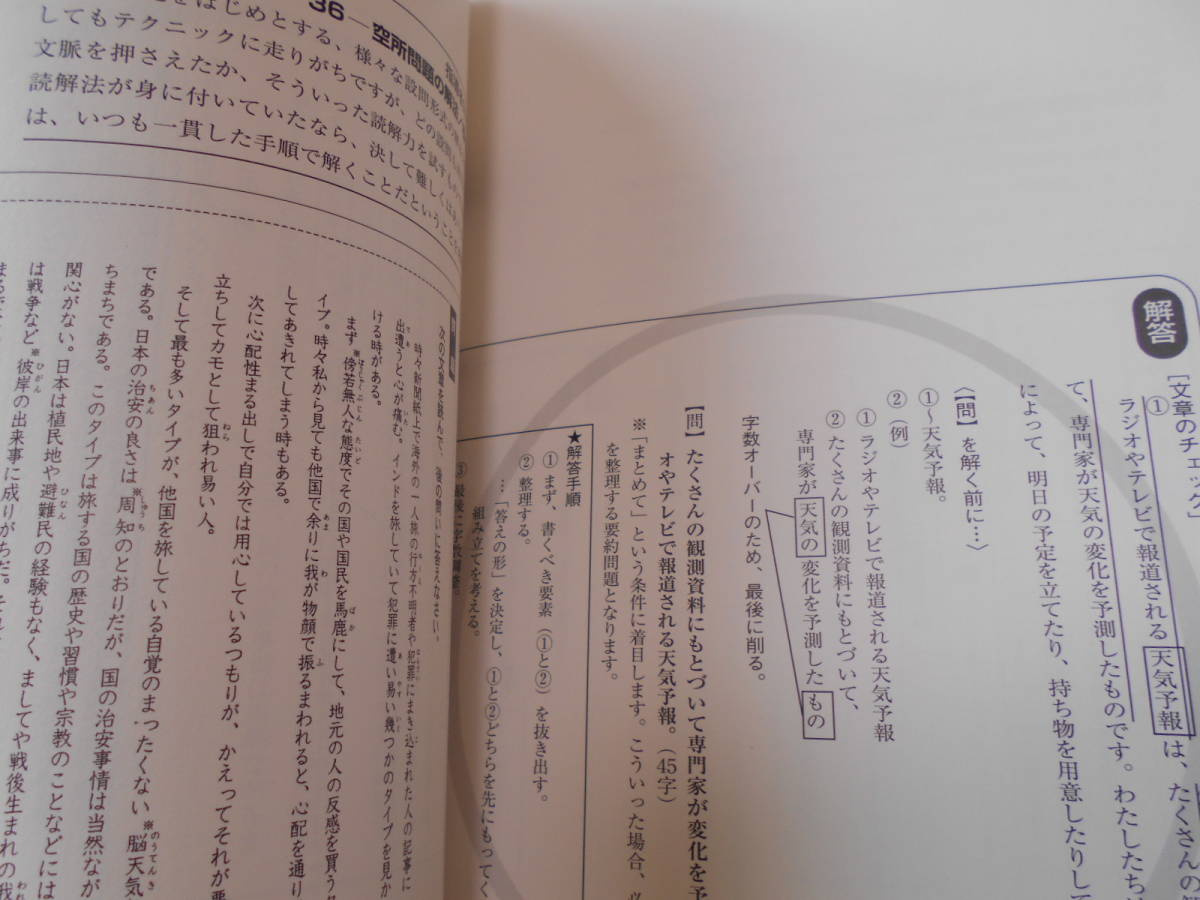 解答
[文章のチェック]
① ラジオやテレビで報道される 天気予報 は、たくさんの
て、専門家が天気の変化を予測したものです。わたしたちは
によって、明日の予定を立てたり、持ち物を用意したりして
〈【問】を解く前に…〉
①〜天気予報。
②(例)
① ラジオやテレビで報道される天気予報
② たくさんの観測資料にもとづいて、
専門家が 天気の 変化を予測した もの
字数オーバーのため、最後に削る。
【問】たくさんの観測資料にもとづいて専門家が変化を予
オやテレビで報道される天気予報。(45字)
※「まとめて」という条件に着目します。こういった場合、必
を整理する要約問題となります。
★解答手順
① まず、書くべき要素(①と②)を抜き出す。
② 整理する。
…「答えの形」を決定し、①と②どちらを先にもってく
組み立てを考える。
③ 最後に字数調整。
36―空所問題の解法
をはじめとする、様々な設問形式の
してもテクニックに走りがちですが、どの設問も
文脈を押さえたか、そういった読解力を試すもの
読解法が身に付いていたなら、決して難しくはあ
は、いつも一貫した手順で解くことだということ
次の文章を読んで、後の問いに答えなさい。
時々新聞紙上で海外の一人旅の行方不明者や犯罪にまき込まれた人の記事に
出遭うと心が痛む。インドを旅していて犯罪に遭い易い幾つかのタイプを見か
ける時がある。
まず※傍若無人な態度でその国や国民を馬鹿にして、地元の人の反感を買う
イプ。時々私から見ても他国で余りに我が物顔で振るまわれると、心配を通り
してあきれてしまう時もある。
次に心配性まる出しで自分では用心しているつもりが、かえってそれが悪
立ちしてカモとして狙われ易い人。
そして最も多いタイプが、他国を旅している自覚のまったくない※脳天気
である。日本の治安の良さは※周知のとおりだが、国の治安事情は当然なが
ちまちである。このタイプは旅する国の歴史や習慣や宗教のことなどには
関心がない。日本は植民地や避難民の経験もなく、ましてや戦後生まれの我
は戦争など※彼岸の出来事に成りがちだ。それ